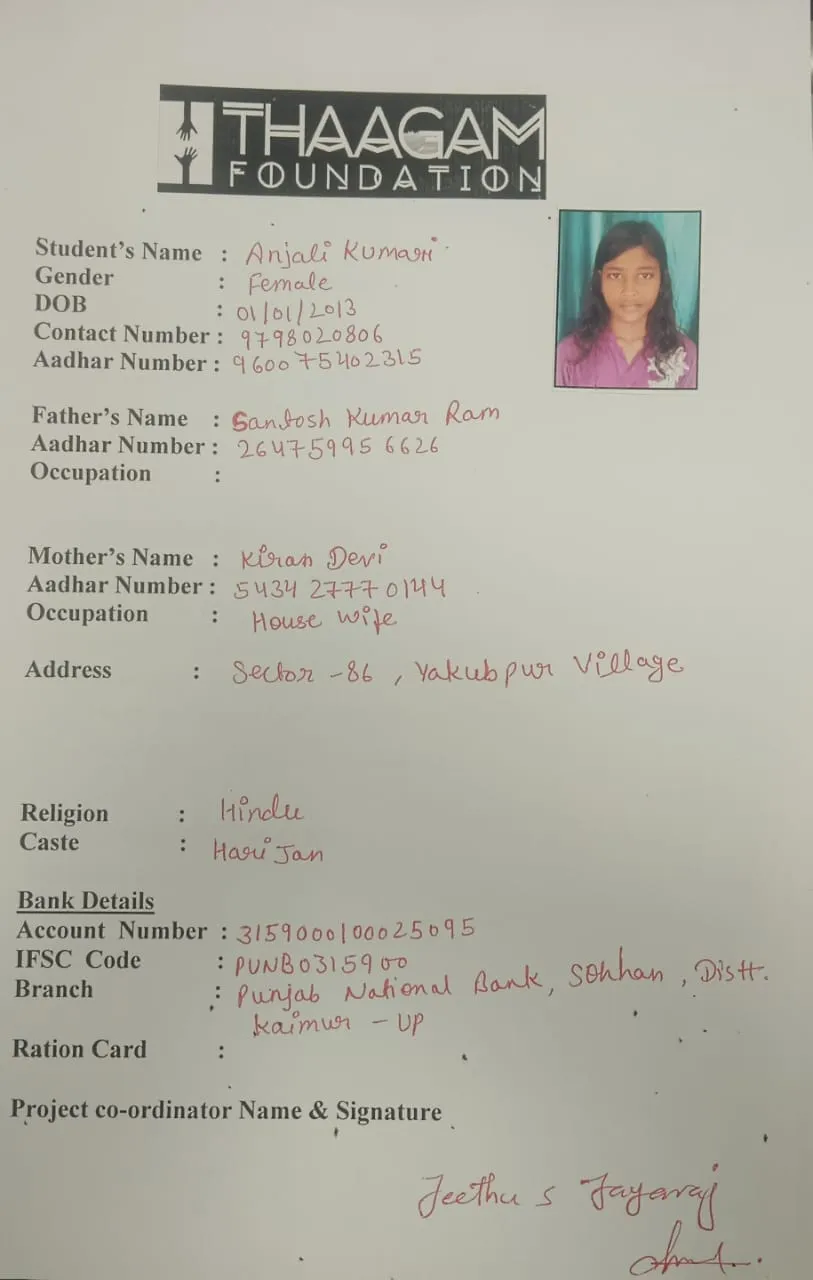 THAAGAM
FOUNDATION
Student's Name : Anjali Kumari
Gender : Female
DOB : 01/01/2013
Contact Number : 9798020806
Aadhar Number : 960075402315
Father's Name : Santosh Kumar Ram
Aadhar Number : 264759956626
Occupation :
Mother's Name : Kiran Devi
Aadhar Number : 5434 27770144
Occupation : House wife
Address : Sector -86, Yakubpur Village
Religion : Hindu
Caste : Hari Jan
Bank Details
Account Number : 3159000100025095
IFSC Code : PUNB0315900
Branch : Punjab National Bank, Sonhan, Distt.
Kaimur - UP
Ration Card :
Project co-ordinator Name & Signature
Jeethu S Jayaraj